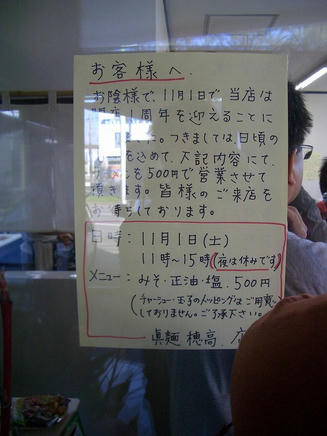 お客様へ.
お陰様で、11月1日で、当店は
開店1周年を迎えることに
した。つきましては日頃の
を込めて、下記内容にて、
を500円で営業させて
頂きます。皆様のご来店を
お待ちしております。
日時：11月1日(土)
11時～15時(夜は休みです)
メニュー：みそ・正油・塩. 500円
(チャーシュー・玉子のトッピングはご用意
しておりません。ご了承下さい。
眞麺 穂高.